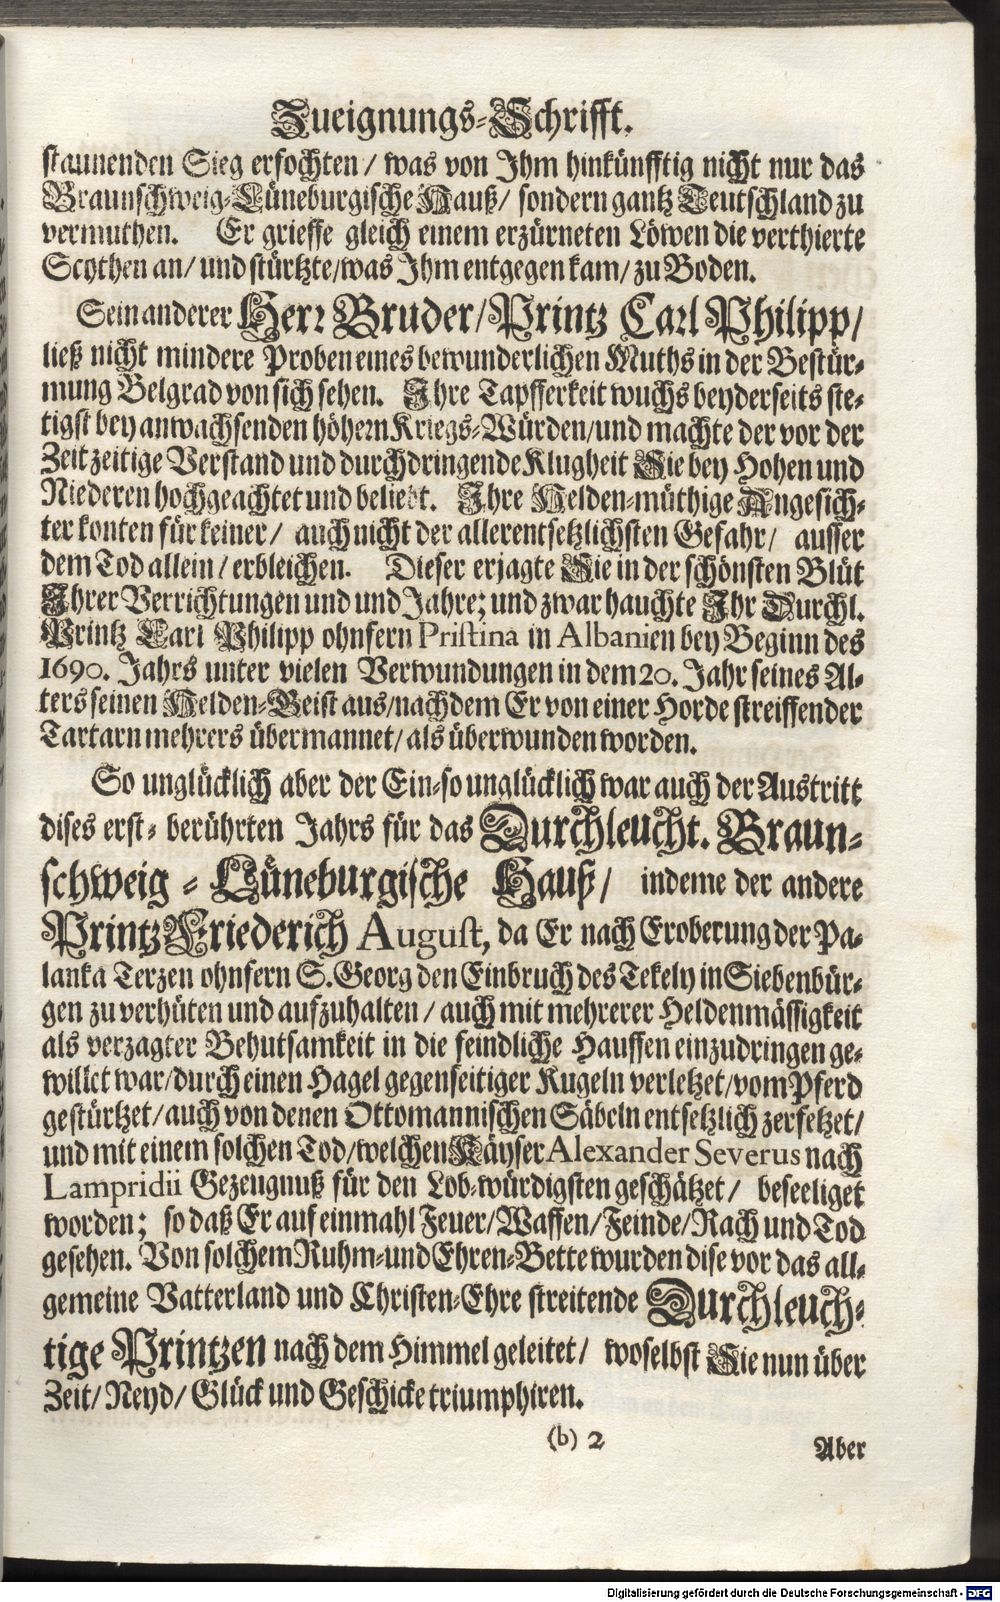 Zueignungs-Schrifft.
staunenden Sieg erfochten / was von Ihm hinkünfftig nicht nur das
Braunschweig-Lüneburgische Hauß / sondern gantz Teutschland zu
vermuthen. Er grieffe gleich einem erzürneten Löwen die verthierte
Scythen an / und stürtzte / was Ihm entgegen kam / zu Boden.
Sein anderer Herr Bruder / Printz Carl Philipp /
ließ nicht mindere Proben eines bewunderlichen Muths in der Bestür-
mung Belgrad von sich sehen. Ihre Tapfferkeit wuchs beyderseits ste-
tigst bey anwachsenden höhern Kriegs-Würden / und machte der vor der
Zeit zeitige Verstand und durchdringende Klugheit Sie bey Hohen und
Niederen hochgeachtet und beliebt. Ihre Helden-müthige Angesich-
ter konten für keiner / auch nicht der allerentsetzlichsten Gefahr / ausser
dem Tod allein / erbleichen. Dieser erjagte Sie in der schönsten Blüt
Ihrer Verrichtungen und und Jahre; und zwar hauchte Ihr Durchl.
Printz Carl Philipp ohnfern Pristina in Albanien bey Beginn des
1690. Jahrs unter vielen Verwundungen in dem 20. Jahr seines Al-
ters seinen Helden-Geist aus / nachdem Er von einer Horde streiffender
Tartarn mehrers übermannet / als überwunden worden.
So unglücklich aber der Ein- so unglücklich war auch der Austritt
dises erst-berührten Jahrs für das Durchleucht. Braun-
schweig-Lüneburgische Hauß / indeme der andere
Printz Friederich August, da Er nach Eroberung der Pa-
lanka Terzen ohnfern S. Georg den Einbruch des Tekely in Siebenbür-
gen zu verhüten und aufzuhalten / auch mit mehrerer Heldenmässigkeit
als verzagter Behutsamkeit in die feindliche Hauffen einzudringen ge-
willet war / durch einen Hagel gegenseitiger Kugeln verletzet / vom Pferd
gestürtzet / auch von denen Ottomannischen Säbeln entsetzlich zerfetzet /
und mit einem solchen Tod / welchen Käyser Alexander Severus nach
Lampridii Gezeugnuß für den Lob-würdigsten geschätzet / beseeliget
worden; so daß Er auf einmahl Feuer / Waffen / Feinde / Rach und Tod
gesehen. Von solchem Ruhm- und Ehren-Bette wurden dise vor das all-
gemeine Vatterland und Christen-Ehre streitende Durchleuch-
tige Printzen nach dem Himmel geleitet / woselbst Sie nun über
Zeit / Neyd / Glück und Geschicke triumphiren.
(b) 2
Aber
Digitalisierung gefördert durch die Deutsche Forschungsgemeinschaft - DFG